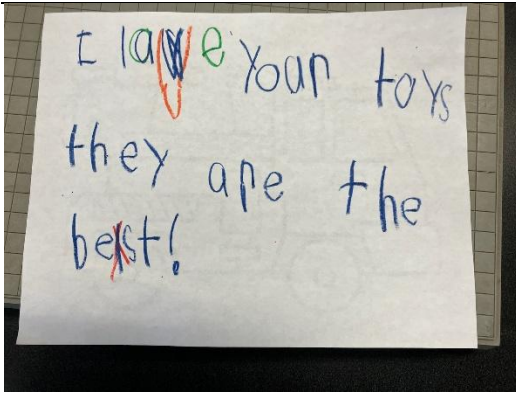 I lave your toys
they are the
best!